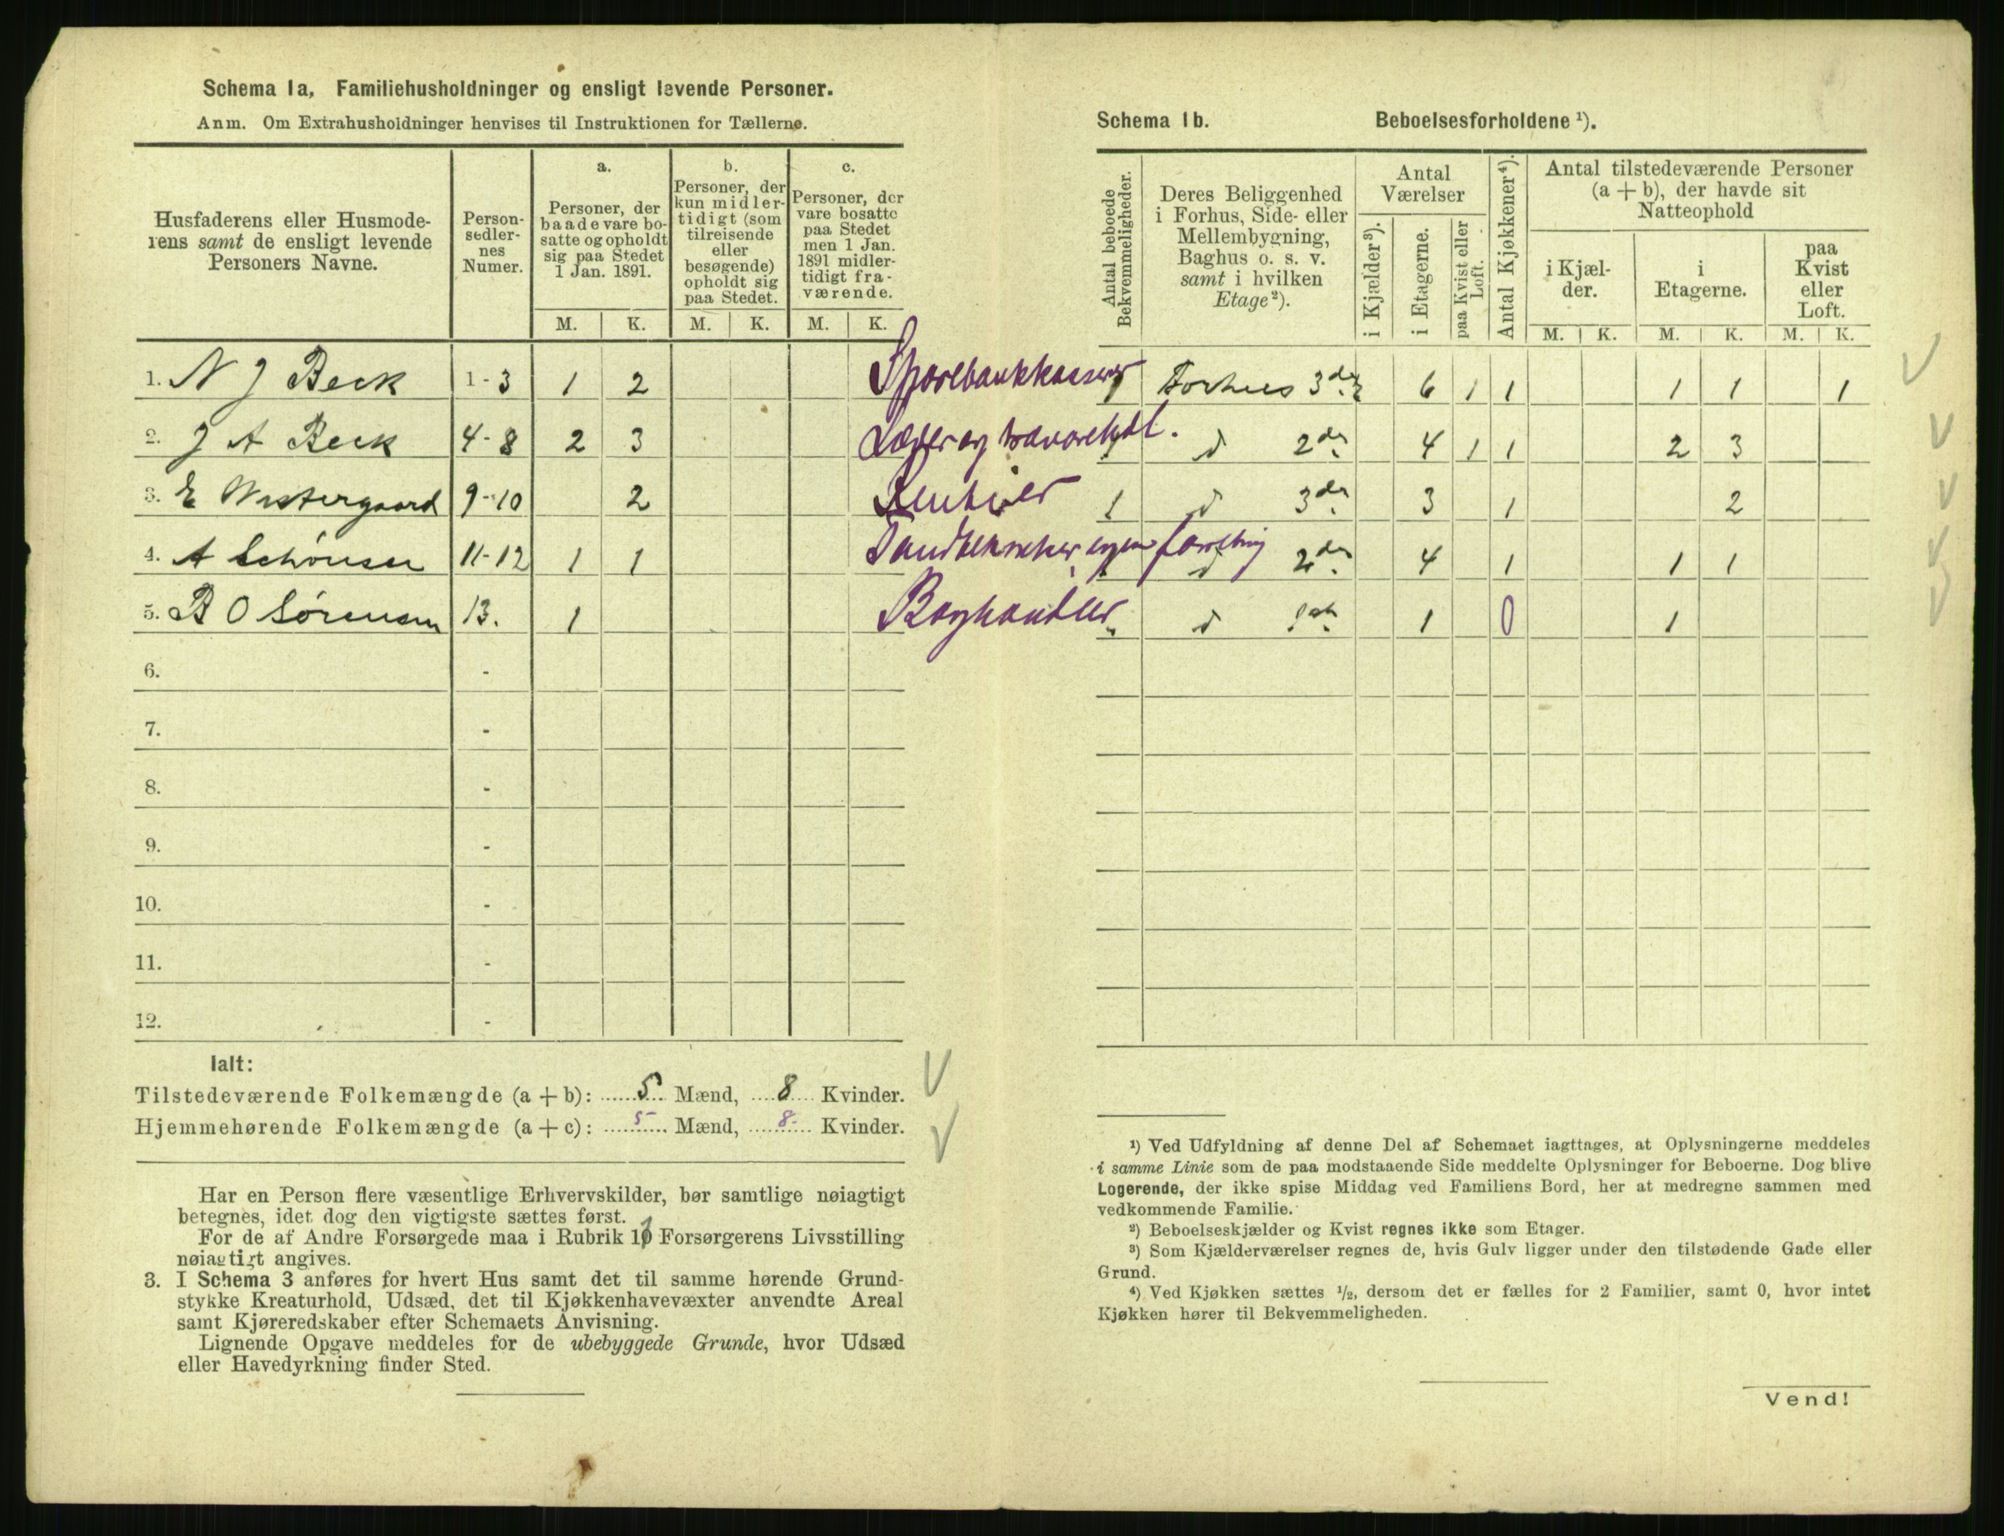 Schema 1a, Familiehusholdninger og ensligt levende Personer.
Anm. Om Extrahusholdninger henvises til Instruktionen for Tællerne.
Husfaderens eller Husmode-
rens samt de ensligt levende
Personers Navne.
Person-
sedler-
nes
Numer.
a.
Personer, der
baade vare bo-
satte og opholdt
sig paa Stedet
1 Jan. 1891.
b.
Personer, der
kun midler-
tidigt (som
tilreisende
eller
besøgende)
opholdt sig
paa Stedet.
c.
Personer, der
vare bosatte
paa Stedet
men 1 Jan.
1891 midler-
tidigt fra-
værende.
M. K. M. K. M. K.
1. N J Beck 1-3 1 2 Sparebankkasserer
2. J A Beck 4-8 2 3
3. E Westergaard 9-10 2 Rentier
4. A Schønsee 11-12 1 1
5. B O Sørensen 13. 1 Boghandler
6. -
7. -
8. -
9. -
10. -
11. -
12. -
Ialt:
Tilstedeværende Folkemængde (a + b): 5 Mænd, 8 Kvinder.
Hjemmehørende Folkemængde (a + c): 5 Mænd, 8 Kvinder.
Har en Person flere væsentlige Erhvervskilder, bør samtlige nøiagtigt
betegnes, idet dog den vigtigste sættes først.
For de af Andre Forsørgede maa i Rubrik 10 Forsørgerens Livsstilling
nøiagtigt angives.
3. I Schema 3 anføres for hvert Hus samt det til samme hørende Grund-
stykke Kreaturhold, Udsæd, det til Kjøkkenhavevæxter anvendte Areal
samt Kjøreredskaber efter Schemaets Anvisning.
Lignende Opgave meddeles for de ubebyggede Grunde, hvor Udsæd
eller Havedyrkning finder Sted.
Schema 1b. Beboelsesforholdene ¹).
Antal beboede
Bekvemmeligheder.
Deres Beliggenhed
i Forhus, Side- eller
Mellembygning,
Baghus o. s. v.
samt i hvilken
Etage ²).
Antal
Værelser
i Kjælder ³).
i Etagerne.
paa Kvist eller
Loft.
Antal Kjøkkener ⁴).
Antal tilstedeværende Personer
(a + b), der havde sit
Natteophold
i Kjæl-
der.
i
Etagerne.
paa
Kvist
eller
Loft.
M. K. M. K. M. K.
1 Forhus 3de 6 1 1 1 1 1
d 2de 4 1 1 2 3
1 d 3de 3 1 2
d 2de 4 1 1 1
d 1ste 1 0 1
¹) Ved Udfyldning af denne Del af Schemaet iagttages, at Oplysningerne meddeles
i samme Linie som de paa modstaaende Side meddelte Oplysninger for Beboerne. Dog blive
Logerende, der ikke spise Middag ved Familiens Bord, her at medregne sammen med
vedkommende Familie.
²) Beboelseskjælder og Kvist regnes ikke som Etager.
³) Som Kjælderværelser regnes de, hvis Gulv ligger under den tilstødende Gade eller
Grund.
⁴) Ved Kjøkken sættes ½, dersom det er fælles for 2 Familier, samt 0, hvor intet
Kjøkken hører til Bekvemmeligheden.
Vend!